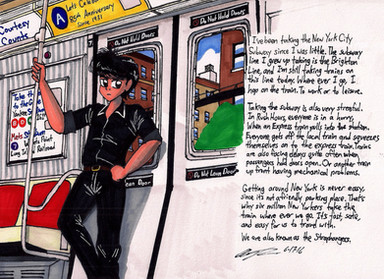 Courtesy
Counts
A
Lets Celebrate
85th Anniversary
Since 1931
Do Not Hold Doors
Do Not Hold Doors
Do Not Lean
ean Door
I've been taking the New York City
Subway since I was little. The subway
line I grew up taking is the Brighton
Line, and I'm still taking trains on
this line today. Where ever I go, I
hop on the train. To work or to leave.
Taking the subway is also very stressful.
In Rush Hours, everyone is in a hurry,
When an Express train pulls into the station.
Everyone gets off the local train and squeezes
themselves on to the express train. Trains
are also facing delays quite often when
passengers hold doors open. Or another train
up front having mechanical problems.
Getting around New York is never easy,
since it's not a friendly parking place. That's
why six million New Yorkers take the
train where ever we go. It's fast, safe,
and easy for us to travel with.
We are also known as the Straphangers.